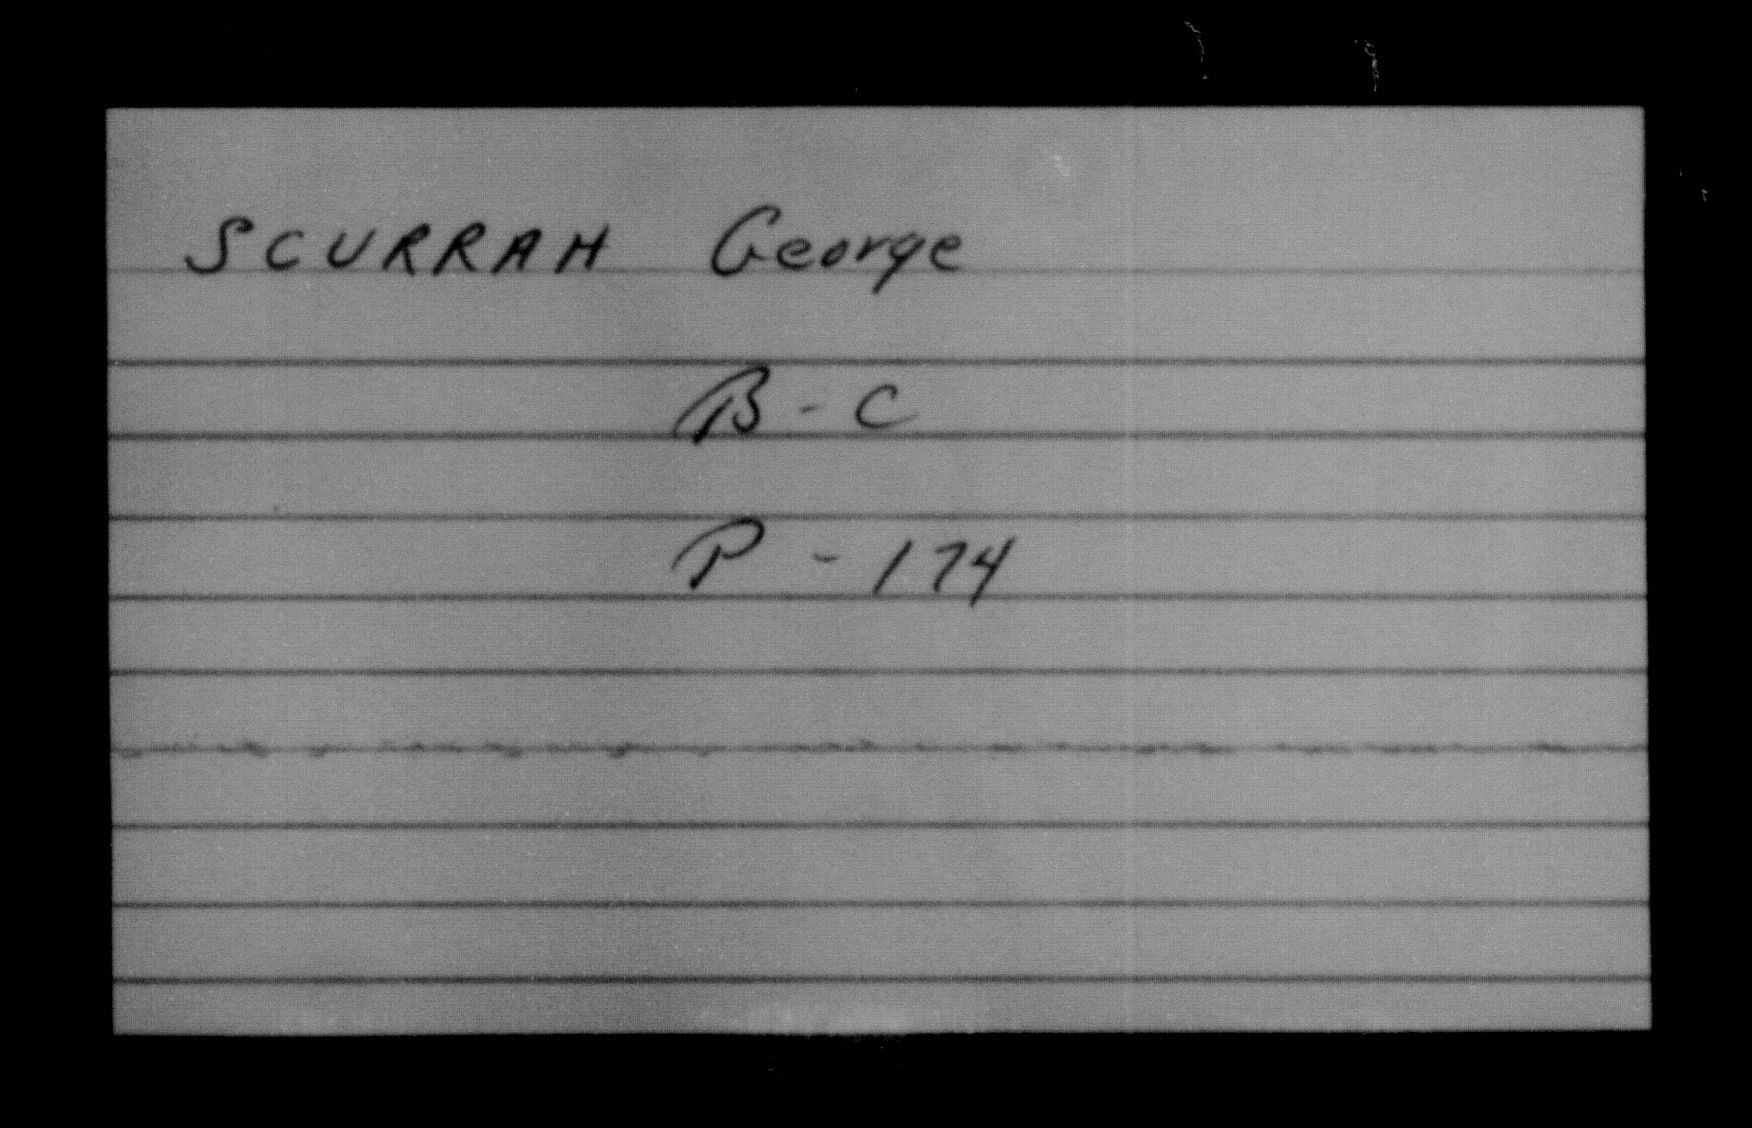 SCURRAH George
B - C
P - 174